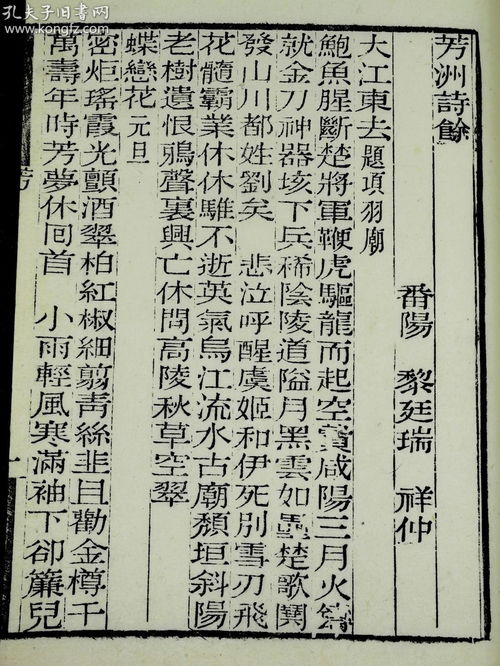 孔夫子旧书网
www.kongfz.com
芳洲詩餘
番陽 黎廷瑞 祥仲
大江東去 題項羽廟
鮑魚腥斷楚將軍鞭虎驅龍而起空費咸陽三月火鑄
就金刀神器垓下兵稀陰陵道隘月黑雲如壘楚歌鬨
發山川都姓劉矣 悲泣呼醒虞姬和伊死別雪刃飛
花髓霸業休休騅不逝英氣烏江流水古廟頹垣斜陽
老樹遺恨鴉聲裏興亡休問高陵秋草空翠
蝶戀花 元旦
密炬瑤霞光顫酒翠柏紅椒細翦青絲韭且勸金樽千
萬壽年時芳夢休囘首 小雨輕風寒滿袖下卻簾兒